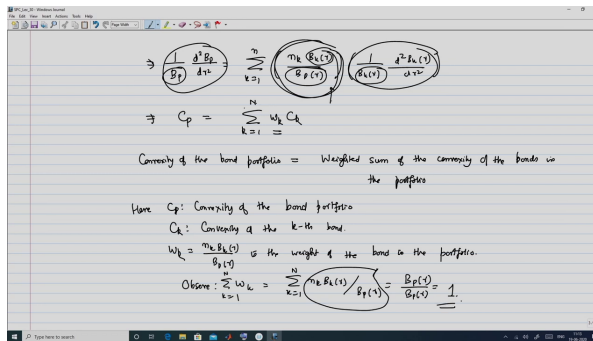 SPC_Lec_30 - Windows Journal
File Edit View Insert Actions Tools Help
Page Width
⇒ 1/B_p d²B_p/dr² = Σ_{k=1}^{n} (n_k B_k(r)/B_p(r)) (1/B_k(r) d²B_k(r)/dr²)
⇒ C_p = Σ_{k=1}^{N} w_k C_k
Convexity of the bond portfolio = Weighted sum of the convexity of the bonds in
the portfolio
Here C_p: Convexity of the bond portfolio
C_k: Convexity of the k-th bond.
w_k = n_k B_k(r)/B_p(r) is the weight of the bond in the portfolio.
Observe: Σ_{k=1}^{N} w_k = Σ_{k=1}^{N} n_k B_k(r)/B_p(r) = B_p(r)/B_p(r) = 1.
Type here to search
ENG